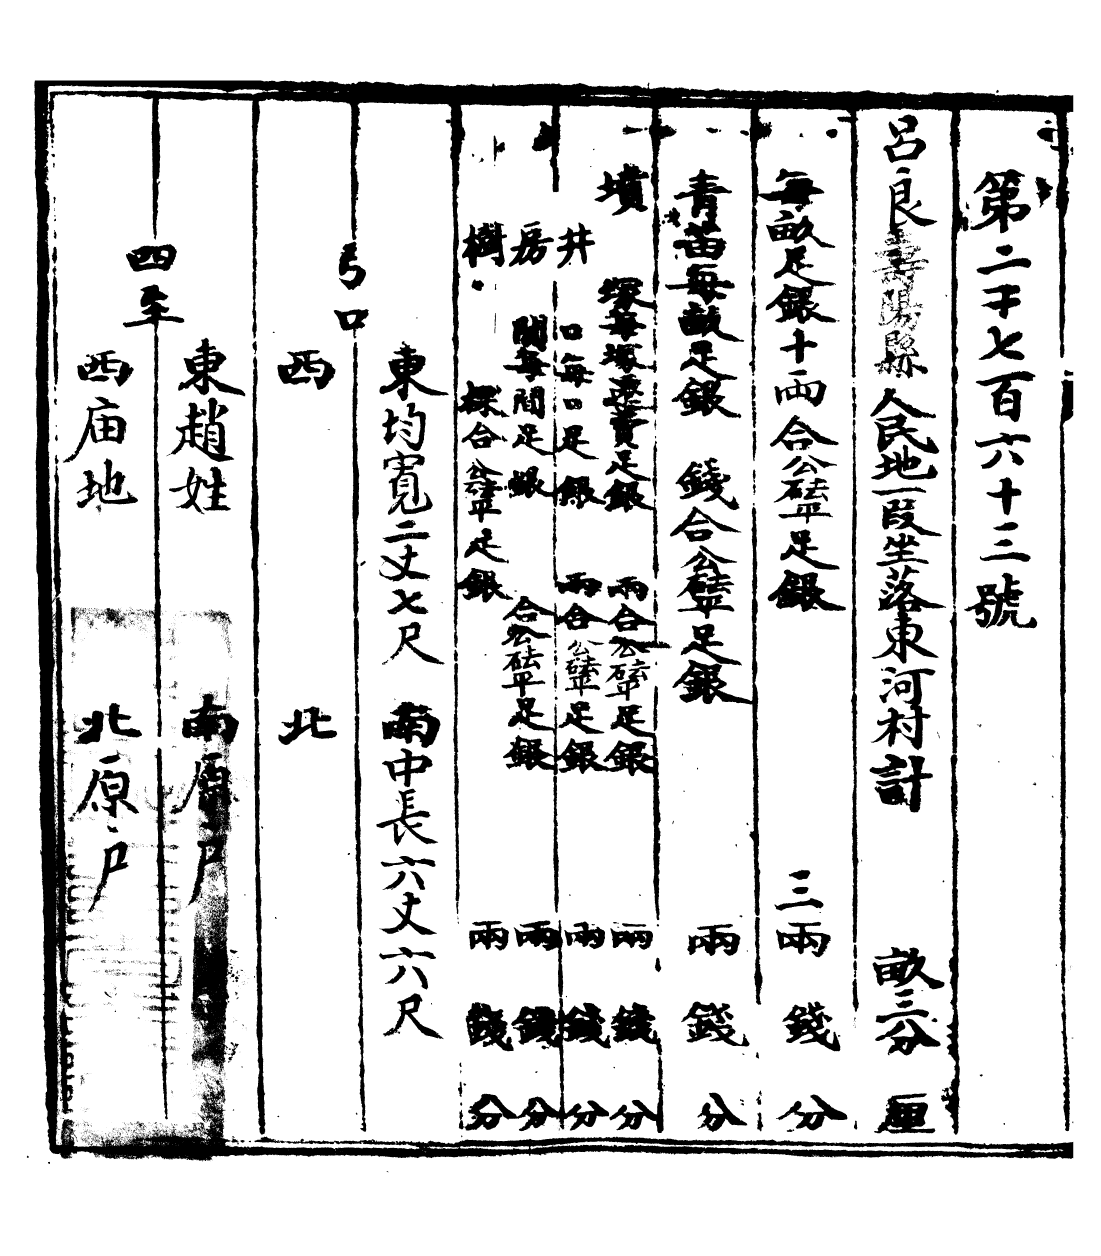 第二千七百六十三號
呂良壽陽縣人民地一段坐落東河村計 畝三分 厘
每畝足銀十両合公砝平足銀 三兩 錢 分
青苗每畝足銀 錢合公砝平足銀 兩 錢 分
墳 塚每塚遷費足銀 兩合公砝平足銀 兩 錢 分
井 口每口足銀 兩合公砝平足銀 兩 錢 分
房 間每間足銀 合公砝平足銀 兩 錢 分
樹 棵合公砝平足銀 兩 錢 分
弓口 東均寬二丈七尺 南中長六丈六尺
西 北
四至 東趙姓 南原戶
西庙地 北原戶